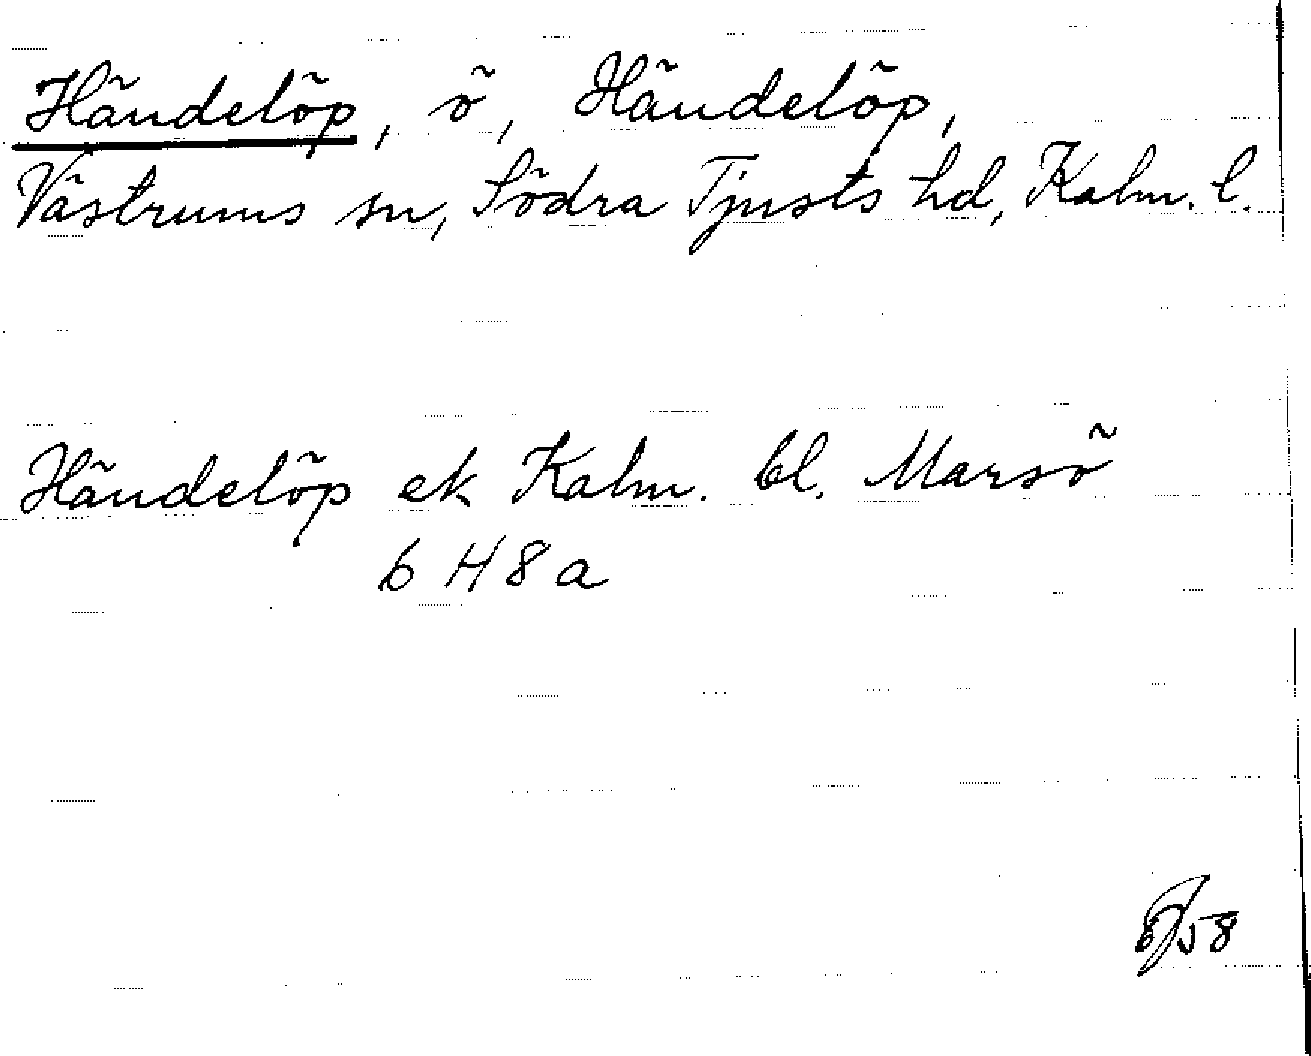 Händelöp, ö, Händelöp,
Västrums sn, Södra Tjusts hd, Kalm. l.
Händelöp ek Kalm. bl. Marsö
6 H 8 a
58